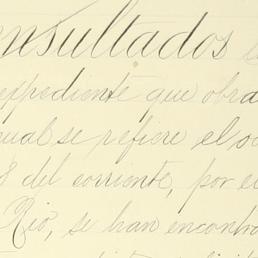 nsultados
expediente que obra
ual se refiere el
8 del corriente, por
Rio, se han encontra